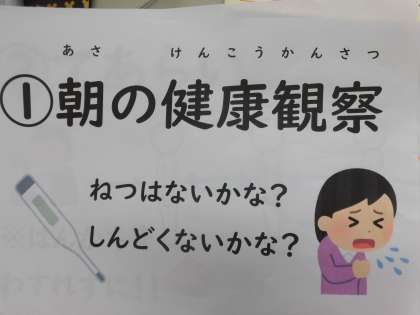 あさ けんこうかんさつ
①朝の健康観察
ねつはないかな?
しんどくないかな?